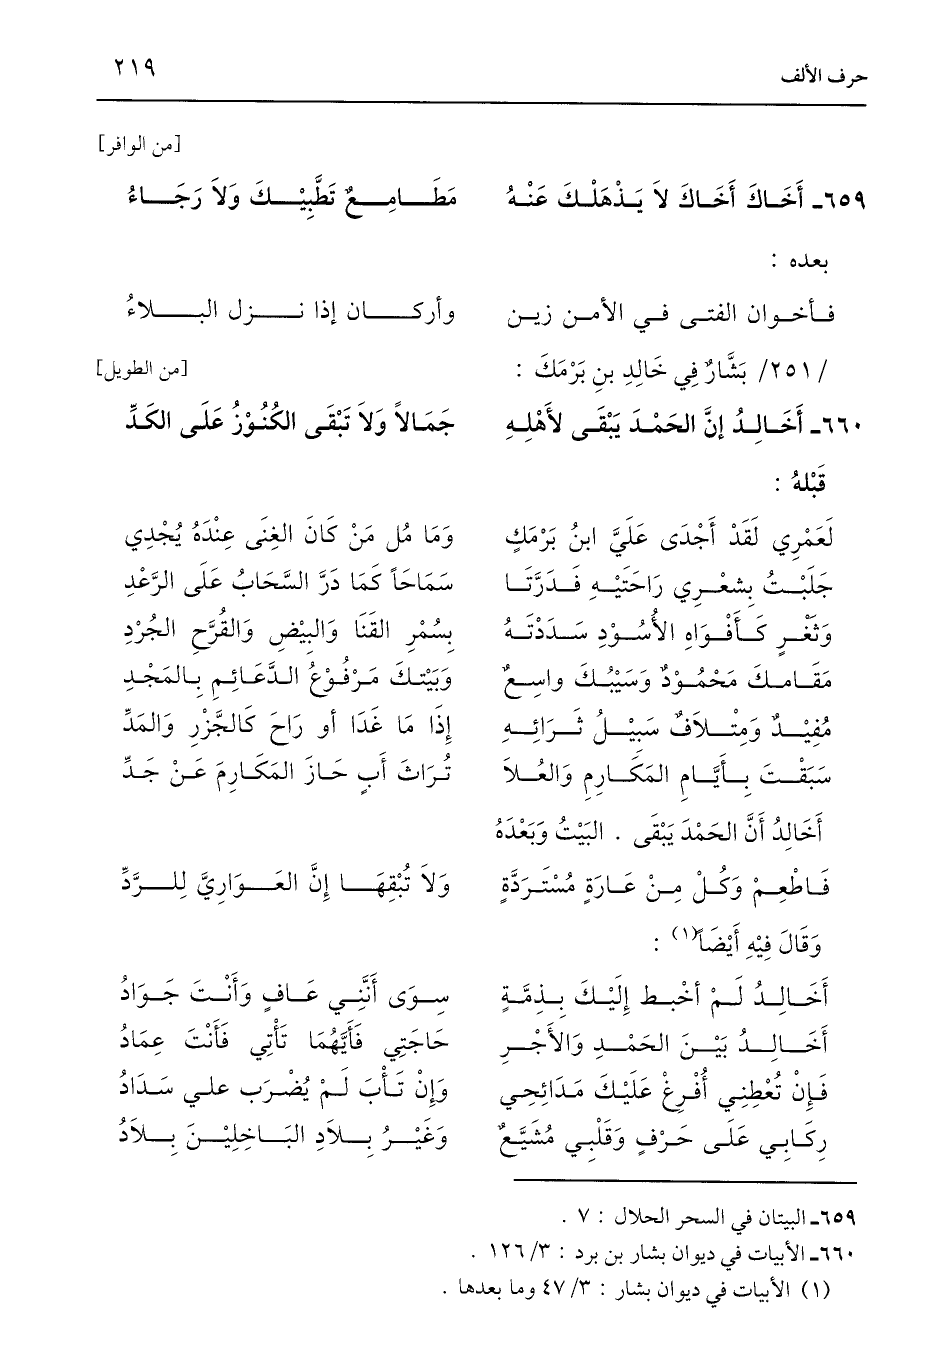 حرف الألف ٢١٩
[من الوافر]
٦٥٩ـ أَخَاكَ أَخَاكَ لاَ يَذْهَلْكَ عَنْهُ مَطَامِعٌ تَطَّبِيْكَ وَلاَ رَجَاءُ
بعده :
فأخوان الفتى في الأمن زين وأركان إذا نزل البلاءُ
/ ٢٥١/ بَشَّارٌ فِي خَالِدِ بنِ بَرْمَكَ : [من الطويل]
٦٦٠ـ أَخَالِدُ إنَّ الحَمْدَ يَبْقَى لأَهْلِهِ جَمَالاً وَلاَ تَبْقَى الكُنُوْزُ عَلَى الكَدِّ
قَبْلهُ :
لَعَمْرِي لَقَدْ أَجْدَى عَلَيَّ ابنُ بَرْمَكٍ وَمَا مُل مَنْ كَانَ الغِنَى عِنْدَهُ يُجْدِي
جَلَبْتُ بِشعْرِي رَاحَتَيْهِ فَدَرَّتَا سَمَاحَاً كَمَا دَرَّ السَّحَابُ عَلَى الرَّعْدِ
وَثَغْرٍ كَأَفْوَاهِ الأُسُوْدِ سَدَدْتَهُ بِسُمْرِ القَنَا وَالبِيْضِ وَالقُرَّحِ الجُرْدِ
مَقَامكَ مَحْمُوْدٌ وَسَيْبُكَ واسِعٌ وَبَيْتكَ مَرْفُوْعُ الدَّعَائِمِ بِالمَجْدِ
مُفِيْدٌ وَمِتْلاَفٌ سَبِيْلُ ثَرَائِهِ إِذَا مَا غَدَا أو رَاحَ كَالجَزْرِ وَالمَدِّ
سَبَقْتَ بِأَيَّامِ المَكَارِمِ وَالعُلاَ تُرَاثَ أَبٍ حَازَ المَكَارِمَ عَنْ جَدِّ
أَخَالدُ أَنَّ الحَمْدَ يَبْقَى . البَيْتُ وَبَعْدَهُ
فَاطْعِمْ وَكُلْ مِنْ عَارَةٍ مُسْتَرَدَّةٍ وَلاَ تُبْقِهَا إنَّ العَوَارِيَّ لِلرَّدِّ
وَقَالَ فِيْهِ أَيْضَاً(١) :
أَخَالِدُ لَمْ أخْبط إِلَيْكَ بِذمَّةٍ سِوَى أَنَّنِي عَافٍ وَأَنْتَ جَوَادُ
أَخَالِدُ بَيْنَ الحَمْدِ وَالأَجْرِ حَاجَتِي فَأَيَّهُمَا تَأْتِي فَأَنْتَ عِمَادُ
فَإِنْ تُعْطِنِي أُفْرِغْ عَلَيْكَ مَدَائِحِي وَإِنْ تَأْبَ لَمْ يُضْرَب علي سَدَادُ
رِكَابِي عَلَى حَرْفٍ وَقَلْبِي مُشَيَّعٌ وَغَيْرُ بِلاَدِ البَاخِلِيْنَ بِلاَدُ
٦٥٩ـ البيتان في السحر الحلال : ٧ .
٦٦٠ـ الأبيات في ديوان بشار بن برد : ٣/ ١٢٦ .
(١) الأبيات في ديوان بشار : ٣/ ٤٧ وما بعدها .